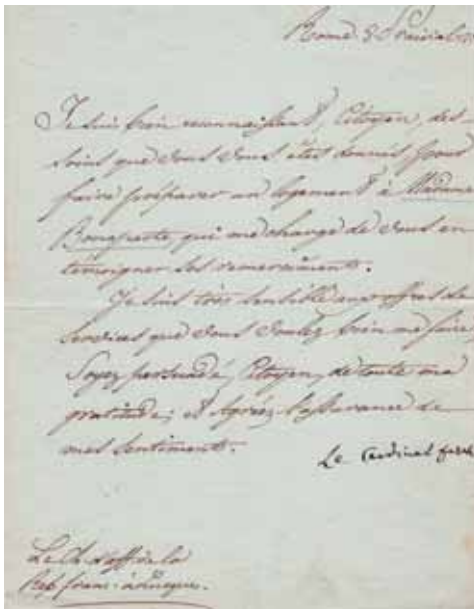 Rome 8
Je suis bien reconnaissant, Citoyen, des
soins que vous vous êtes donnés pour
faire préparer un logement à Madame
Bonaparte, qui me charge de vous en
témoigner ses remerciments.
Je suis très sensible aux offres de
services que vous voulez bien me faire,
Soyez persuadé, Citoyen, de toute ma
gratitude; et Agréez l'assurance de
mes sentiments.
Le Cardinal fesch
Le Ch. d'aff. de la
Rep. franc. à Lucques.